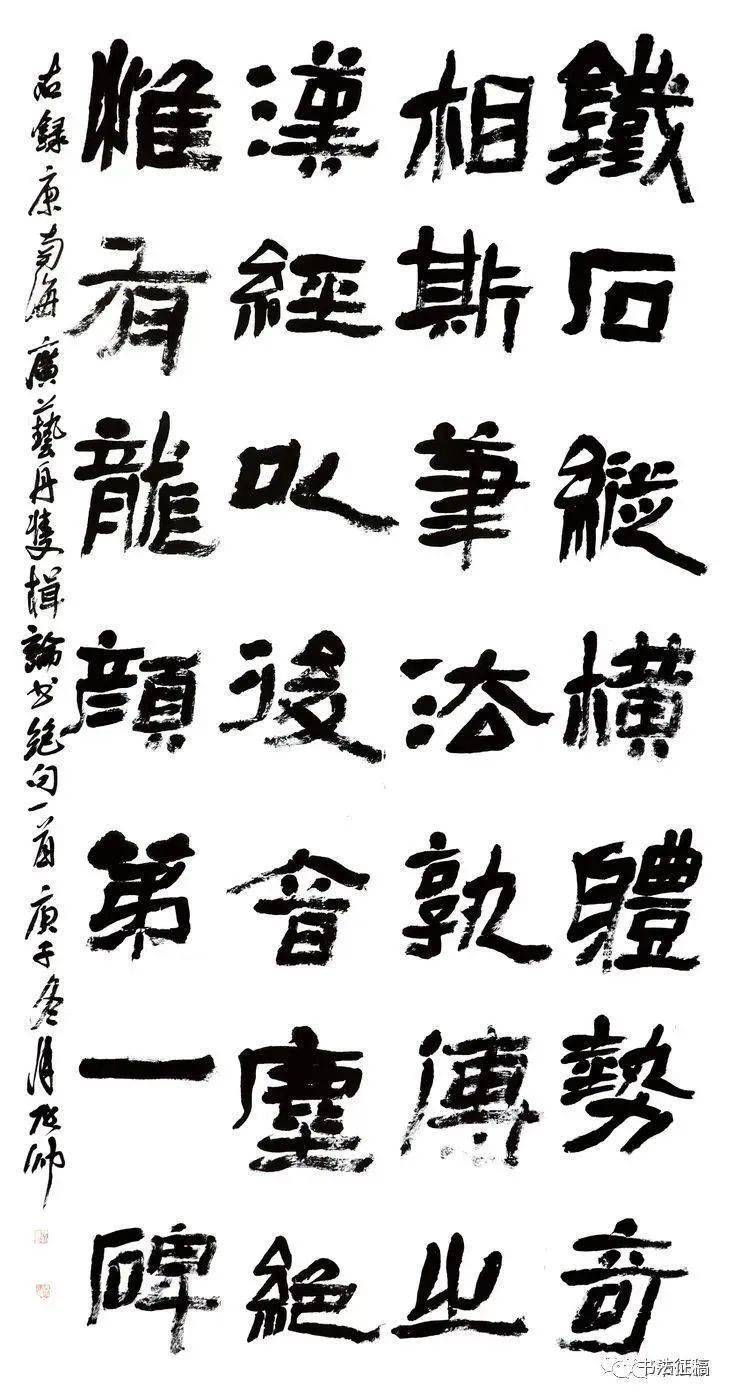 鐵石縱橫軆勢奇
相斯筆法孰傳之
漢經以後音塵絕
惟有龍顏第一碑
右録康南海廣藝舟雙楫論書絕句一首庚子冬月
书法征稿